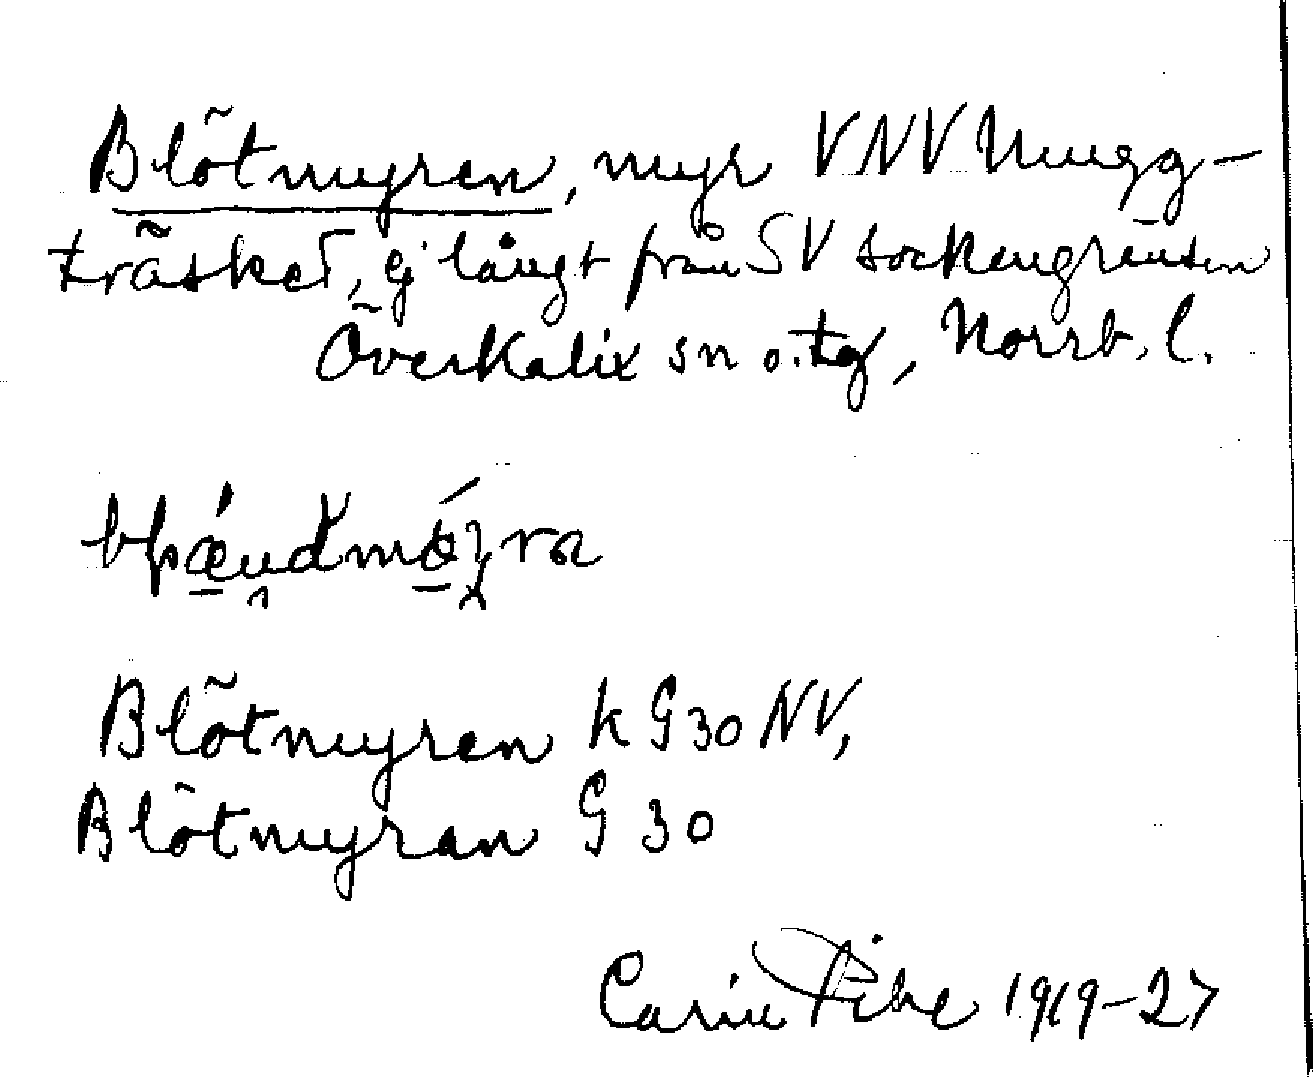 Blötmyren, myr VNV Mugg-
träsket, ej långt från SV sockengränsen
Överkalix sn o. tg, Norrb. l.
Blötmyren k G 30 NV,
Blötmyran G 30
Carin Pihl 1919-27